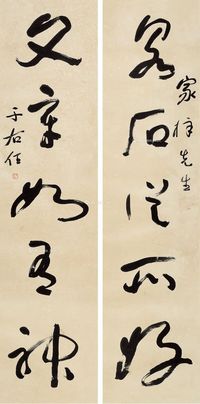 泉石從所好
家先生
文章如有神
于右任